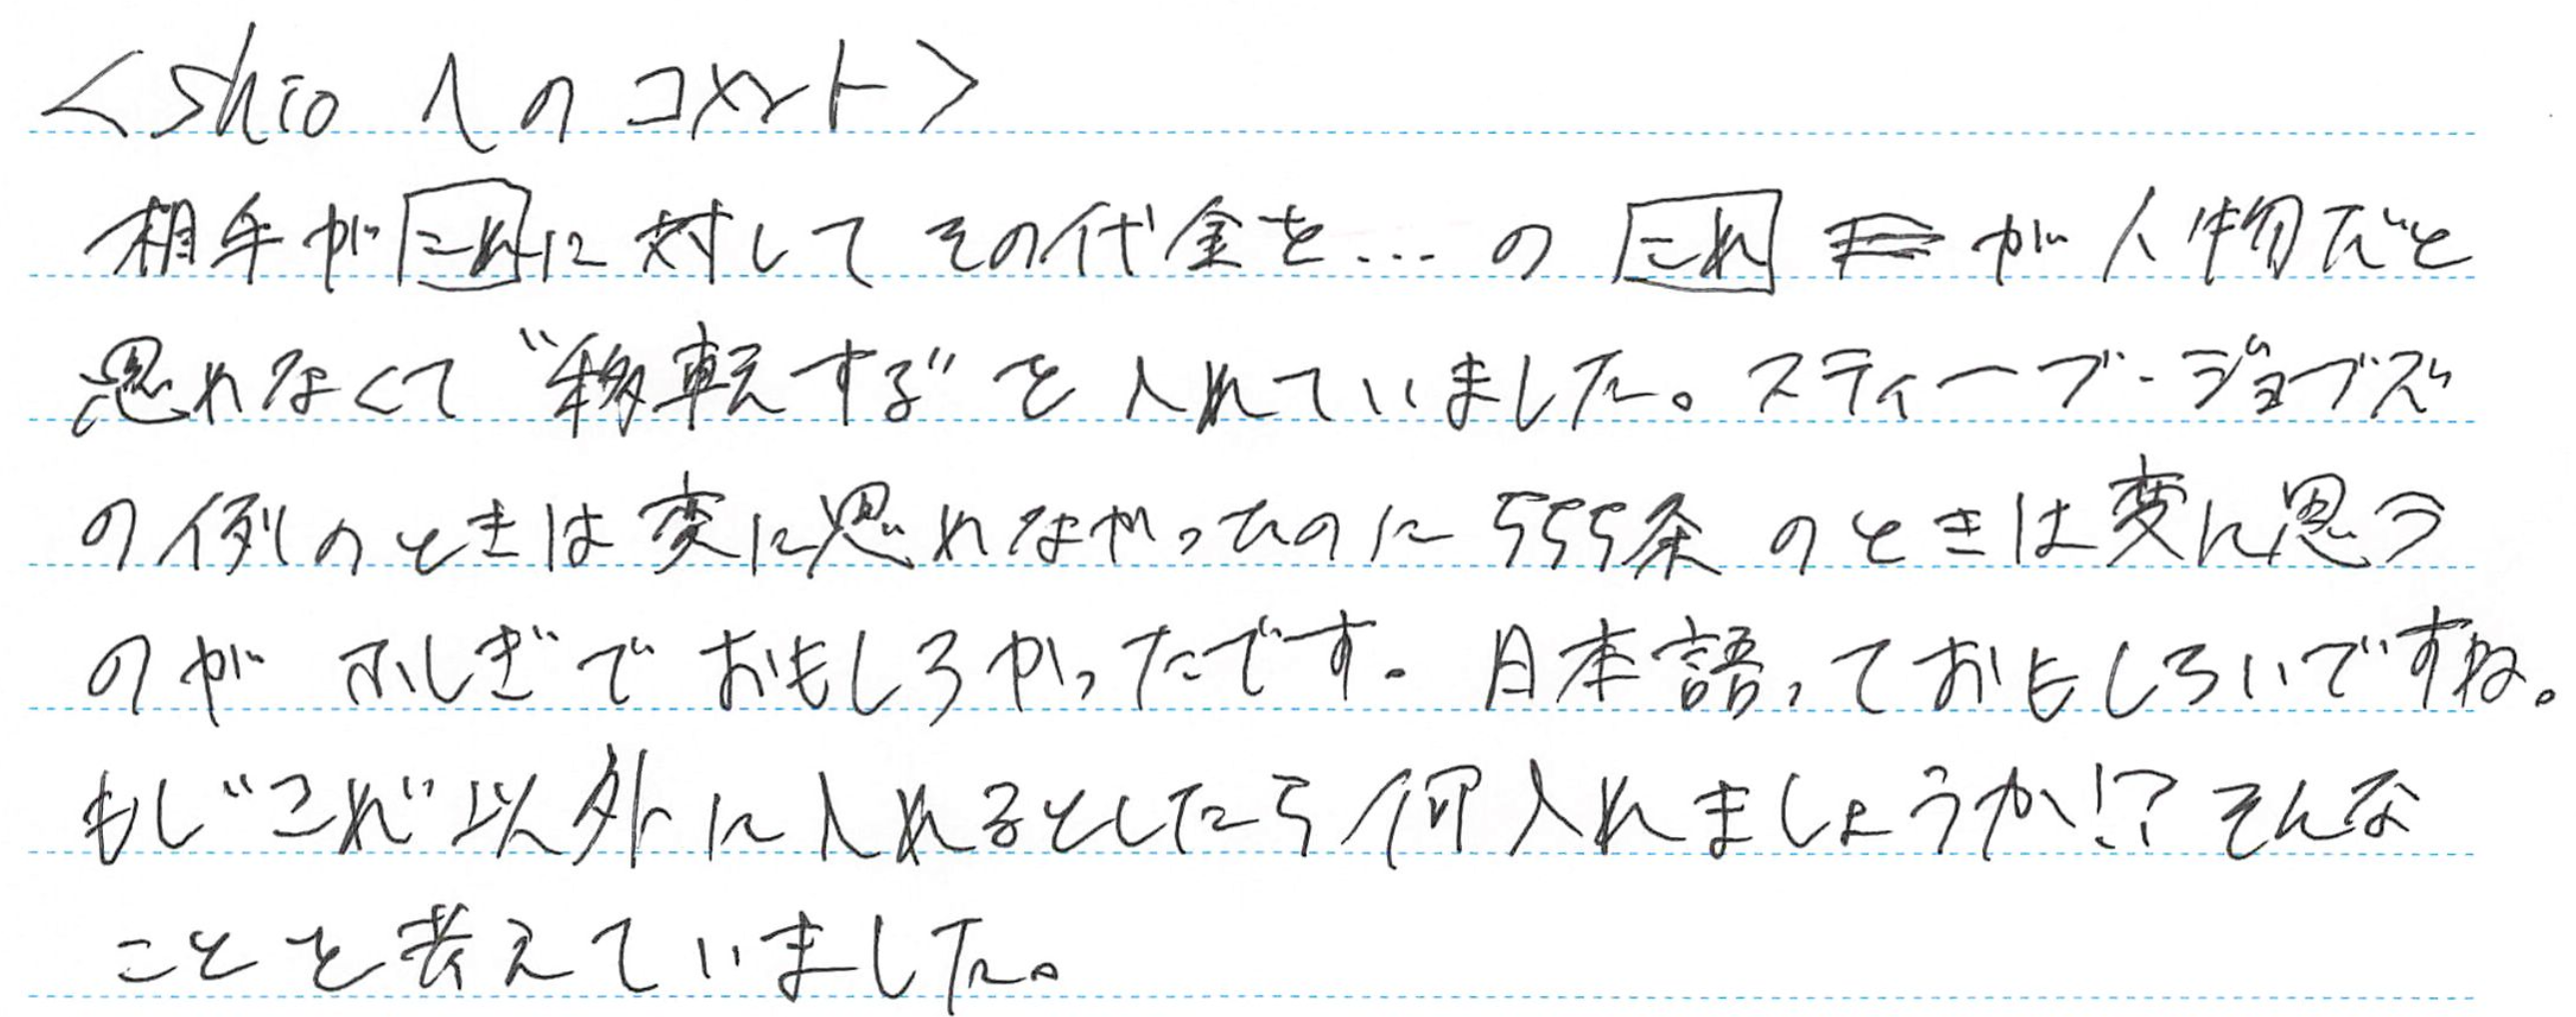 <shioへのコメント>
相手がこれに対してその代金を…のこれが人物だと
思れなくて"移転する"を入れていました。スティーブ・ジョブズ
の例のときは変に思れなかったのに555条のときは変に思う
のがふしぎでおもしろかったです。日本語っておもしろいですね。
もし"これ"以外に入れるとしたら何入れましょうか!?そんな
ことを考えていました。